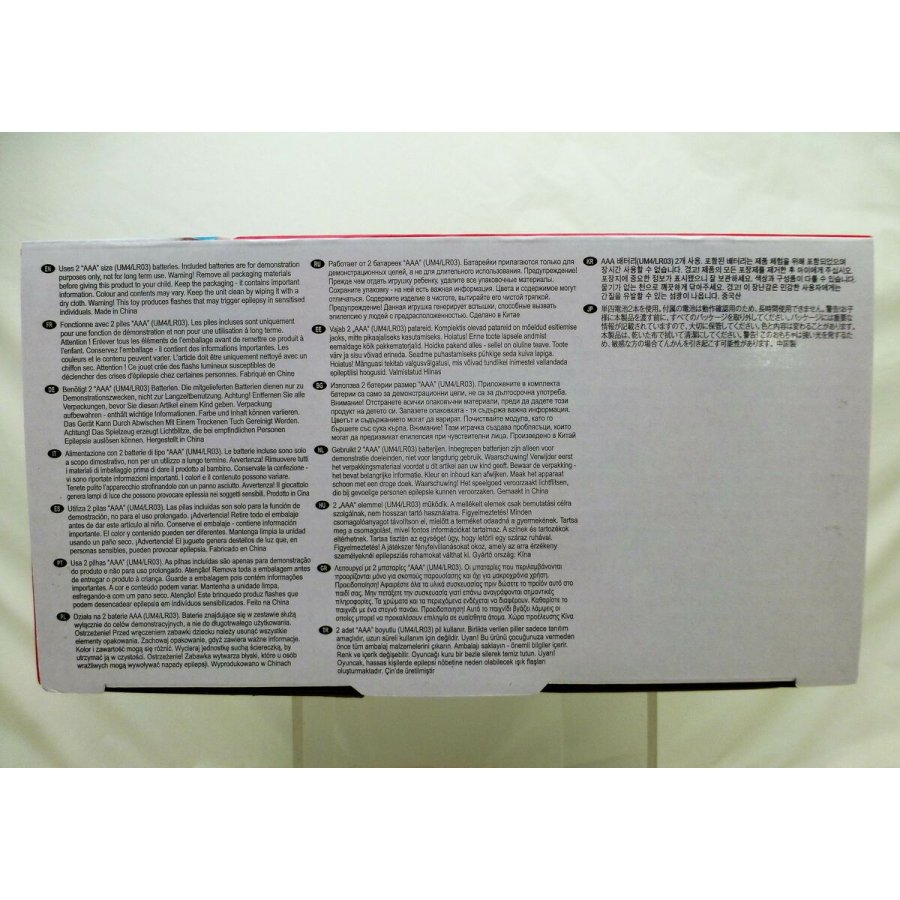 EN Uses 2 "AAA" size (UM4/LR03) batteries. Included batteries are for demonstration
purposes only, not for long term use. Warning! Remove all packaging materials
before giving this product to your child. Keep the packaging - it contains important
information. Colour and contents may vary. Keep the unit clean by wiping it with a
dry cloth. Warning! This toy produces flashes that may trigger epilepsy in sensitised
individuals. Made in China
FR Fonctionne avec 2 piles "AAA" (UM4/LR03). Les piles incluses sont uniquement
pour une fonction de démonstration et non pour une utilisation à long terme.
Attention ! Enlever tous les éléments de l'emballage avant de remettre ce produit à
l'enfant. Conservez l'emballage - il contient des informations importantes. Les
couleurs et le contenu peuvent varier. L'article doit être uniquement nettoyé avec un
chiffon sec. Attention ! Ce jouet crée des flashs lumineux susceptibles de
déclencher des crises d'épilepsie chez certaines personnes. Fabriqué en China
DE Benötigt 2 "AAA" (UM4/LR03) Batterien. Die mitgelieferten Batterien dienen nur zu
Demonstrationszwecken, nicht zur Langzeitbenutzung. Achtung! Entfernen Sie alle
Verpackungen, bevor Sie diesen Artikel einem Kind geben. Verpackung
aufbewahren - enthält wichtige Informationen. Farbe und Inhalt können variieren.
Das Gerät Kann Durch Abwischen Mit Einem Trockenen Tuch Gereinigt Werden.
Achtung! Das Spielzeug erzeugt Lichtblitze, die bei empfindlichen Personen
Epilepsie auslösen können. Hergestellt in China
IT Alimentazione con 2 batterie di tipo "AAA" (UM4/LR03). Le batterie incluse sono solo
a scopo dimostrativo, non per un utilizzo a lungo termine. Avvertenza! Rimuovere tutti
i materiali di imballaggio prima di dare il prodotto al bambino. Conservate la confezione -
vi sono riportate informazioni importanti. I colori e il contenuto possono variare.
Tenete pulito l'apparecchio strofinandolo con un panno asciutto. Avvertenza! Il giocattolo
genera lampi di luce che possono provocare epilessia nei soggetti sensibili. Prodotto in Cina
ES Utiliza 2 pilas "AAA" (UM4/LR03). Las pilas incluidas son solo para la función de
demostración, no para uso prolongado. ¡Advertencia! Retire todo el embalaje
antes de dar este artículo al niño. Conserve el embalaje - contiene información
importante. El color y contenido pueden ser diferentes. Mantenga limpia la unidad
usando un paño seco. ¡Advertencia! El juguete genera destellos de luz que, en
personas sensibles, pueden provocar epilepsia. Fabricado en China
PT Usa 2 pilhas "AAA" (UM4/LR03). As pilhas incluídas são apenas para demonstração
do produto e não para uso prolongado. Atenção! Remova toda a embalagem antes
de entregar o produto à criança. Guarde a embalagem pois contém informações
importantes. A cor e conteúdo podem variar. Mantenha a unidade limpa,
esfregando-a com um pano seco. Atenção! Este brinquedo produz flashes que
podem desencadear epilepsia em indivíduos sensibilizados. Feito na China
PL Działa na 2 baterie AAA (UM4/LR03). Baterie znajdujące się w zestawie służą
wyłącznie do celów demonstracyjnych, a nie do długotrwałego użytkowania.
Ostrzeżenie! Przed wręczeniem zabawki dziecku należy usunąć wszystkie
elementy opakowania. Zachowaj opakowanie, gdyż zawiera ważne informacje.
Kolor i zawartość mogą się różnić. Wycieraj jednostkę suchą ściereczką, by
utrzymać ją w czystości. Ostrzeżenie! Zabawka wytwarza błyski, które u osób
wrażliwych mogą wywoływać napady epilepsji. Wyprodukowano w Chinach
RU Работает от 2 батареек "AAA" (UM4/LR03). Батарейки прилагаются только для
демонстрационных целей, а не для длительного использования. Предупреждение!
Прежде чем отдать игрушку ребенку, удалите все упаковочные материалы.
Сохраните упаковку - на ней есть важная информация. Цвета и содержимое могут
отличаться. Содержите изделие в чистоте, вытирайте его чистой тряпкой.
Предупреждение! Данная игрушка генерирует вспышки, способные вызвать
эпилепсию у людей с предрасположенностью. Сделано в Китае
EE Vajab 2 „AAA" (UM4/LR03) patareid. Komplektis olevad patareid on mõeldud esitlemise
jaoks, mitte pikaajaliseks kasutamiseks. Hoiatus! Enne toote lapsele andmist
eemaldage kõik pakkematerjalid. Hoidke pakend alles - sellel on tähtis teave. Toote
värv ja sisu võivad erineda. Seadme puhastamiseks pühkige seda kuiva lapiga.
Hoiatus! Mänguasi tekitab valgusvälgatusi, mis võivad tundlikel inimestel vallandada
epileptilisi hooge. Valmistatud Hiinas
BG Използва 2 батерии размер "AAA" (UM4/LR03). Приложените в комплекта
батерии са само за демонстрационни цели, не са за дългосрочна употреба.
Внимание! Отстранете всички опаковъчни материали, преди да дадете този
продукт на детето си. Запазете опаковката - тя съдържа важна информация.
Цветът и съдържанието могат да варират. Почиствайте модула, като го
бършете със суха кърпа. Внимание! Тази играчка създава проблясъци, които
могат да предизвикат епилепсия при чувствителни лица. Произведено в Китай
NL Gebruikt 2 "AAA" (UM4/LR03) batterijen. Inbegrepen batterijen zijn alleen voor
demonstratie doeleinden, niet voor langdurig gebruik. Waarschuwing! Verwijder eerst
het verpakkingsmateriaal voordat u dit artikel aan uw kind geeft. Bewaar de verpakking -
het bevat belangrijke informatie. Kleur en inhoud kan afwijken. Maak het apparaat
schoon met een droge doek. Waarschuwing! Het speelgoed veroorzaakt lichtflitsen,
die bij gevoelige personen epilepsie kunnen veroorzaken. Gemaakt in China
HU 2 „AAA" elemmel (UM4/LR03) működik. A mellékelt elemek csak bemutatási célra
szolgálnak, nem hosszantartó használatra. Figyelmeztetés! Minden
csomagolóanyagot távolítson el, mielőtt a terméket odaadná a gyermekének. Tartsa
meg a csomagolást, mivel fontos információkat tartalmaz. A színek és tartozékok
eltérhetnek. Tartsa tisztán az egységet úgy, hogy letörli egy száraz ruhával.
Figyelmeztetés! A játékszer fényfelvillanásokat okoz, amely az arra érzékeny
személyeknél epilepsziás rohamokat válthat ki. Gyártó ország: Kína
GR Λειτουργεί με 2 μπαταρίες "AAA" (UM4/LR03). Οι μπαταρίες που περιλαμβάνονται
προορίζονται μόνο για σκοπούς παρουσίασης και όχι για μακροχρόνια χρήση.
Προειδοποίηση! Αφαιρέστε όλα τα υλικά συσκευασίας πριν δώσετε το προϊόν αυτό στο
παιδί σας. Μην πετάξετε την συσκευασία γιατί επάνω αναγράφονται σημαντικές
πληροφορίες. Τα χρώματα και τα περιεχόμενα ενδέχεται να διαφέρουν. Καθαρίστε το
παιχνίδι με ένα στεγνό πανάκι. Προειδοποίηση! Αυτό το παιχνίδι βγάζει λάμψεις οι
οποίες μπορεί να προκαλέσουν επιληψία σε ευαίσθητα άτομα. Χώρα προέλευσης Κίνα
TR 2 adet "AAA" boyutlu (UM4/LR03) pil kullanır. Birlikte verilen piller sadece tanıtım
amaçlıdır, uzun süreli kullanım için değildir. Uyarı! Bu ürünü çocuğunuza vermeden
önce tüm ambalaj malzemelerini çıkarın. Ambalajı saklayın - önemli bilgiler içerir.
Renk ve içerik değişebilir. Oyuncağı kuru bir bezle silerek temiz tutun. Uyarı!
Oyuncak, hassas kişilerde epilepsi nöbetine neden olabilecek ışık flaşları
oluşturmaktadır. Çin'de üretilmiştir
KR AAA 배터리(UM4/LR03) 2개 사용. 포함된 배터리는 제품 체험을 위해 포함되었으며
장시간 사용할 수 없습니다. 경고! 제품의 모든 포장재를 제거한 후 아이에게 주십시오.
포장지에 중요한 정보가 표시됐으니 잘 보관하세요. 색상과 구성품이 다를 수 있습니다.
물기가 없는 천으로 깨끗하게 닦아주세요. 경고! 이 장난감은 민감한 사용자에게는
간질을 유발할 수 있는 섬광이 나옵니다. 중국산
JP 単四電池2本を使用。付属の電池は動作確認用のため、長時間使用できません。警告!お子
様に本製品を渡す前に、すべてのパッケージを取り外してください。パッケージには重要な
情報が記載されていますので、大切に保管してください。色と内容は変わることがあります。
本製品は、乾いた布で拭いて清潔にしてください。警告! このおもちゃは強い光を発するた
め、敏感な方の場合てんかんを引き起こす可能性があります。中国製